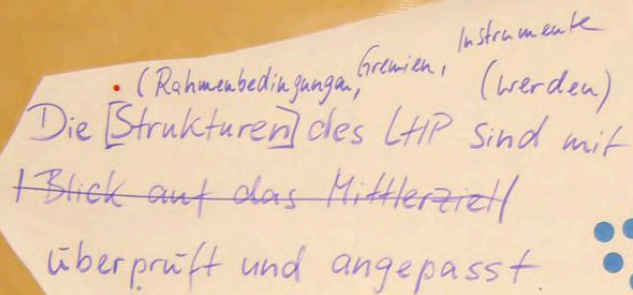 (Rahmenbedingungen, Gremien, Instrumente
(werden)
Die [Strukturen] des LHP sind mit
Blick auf das Mittlerziel
überprüft und angepasst.